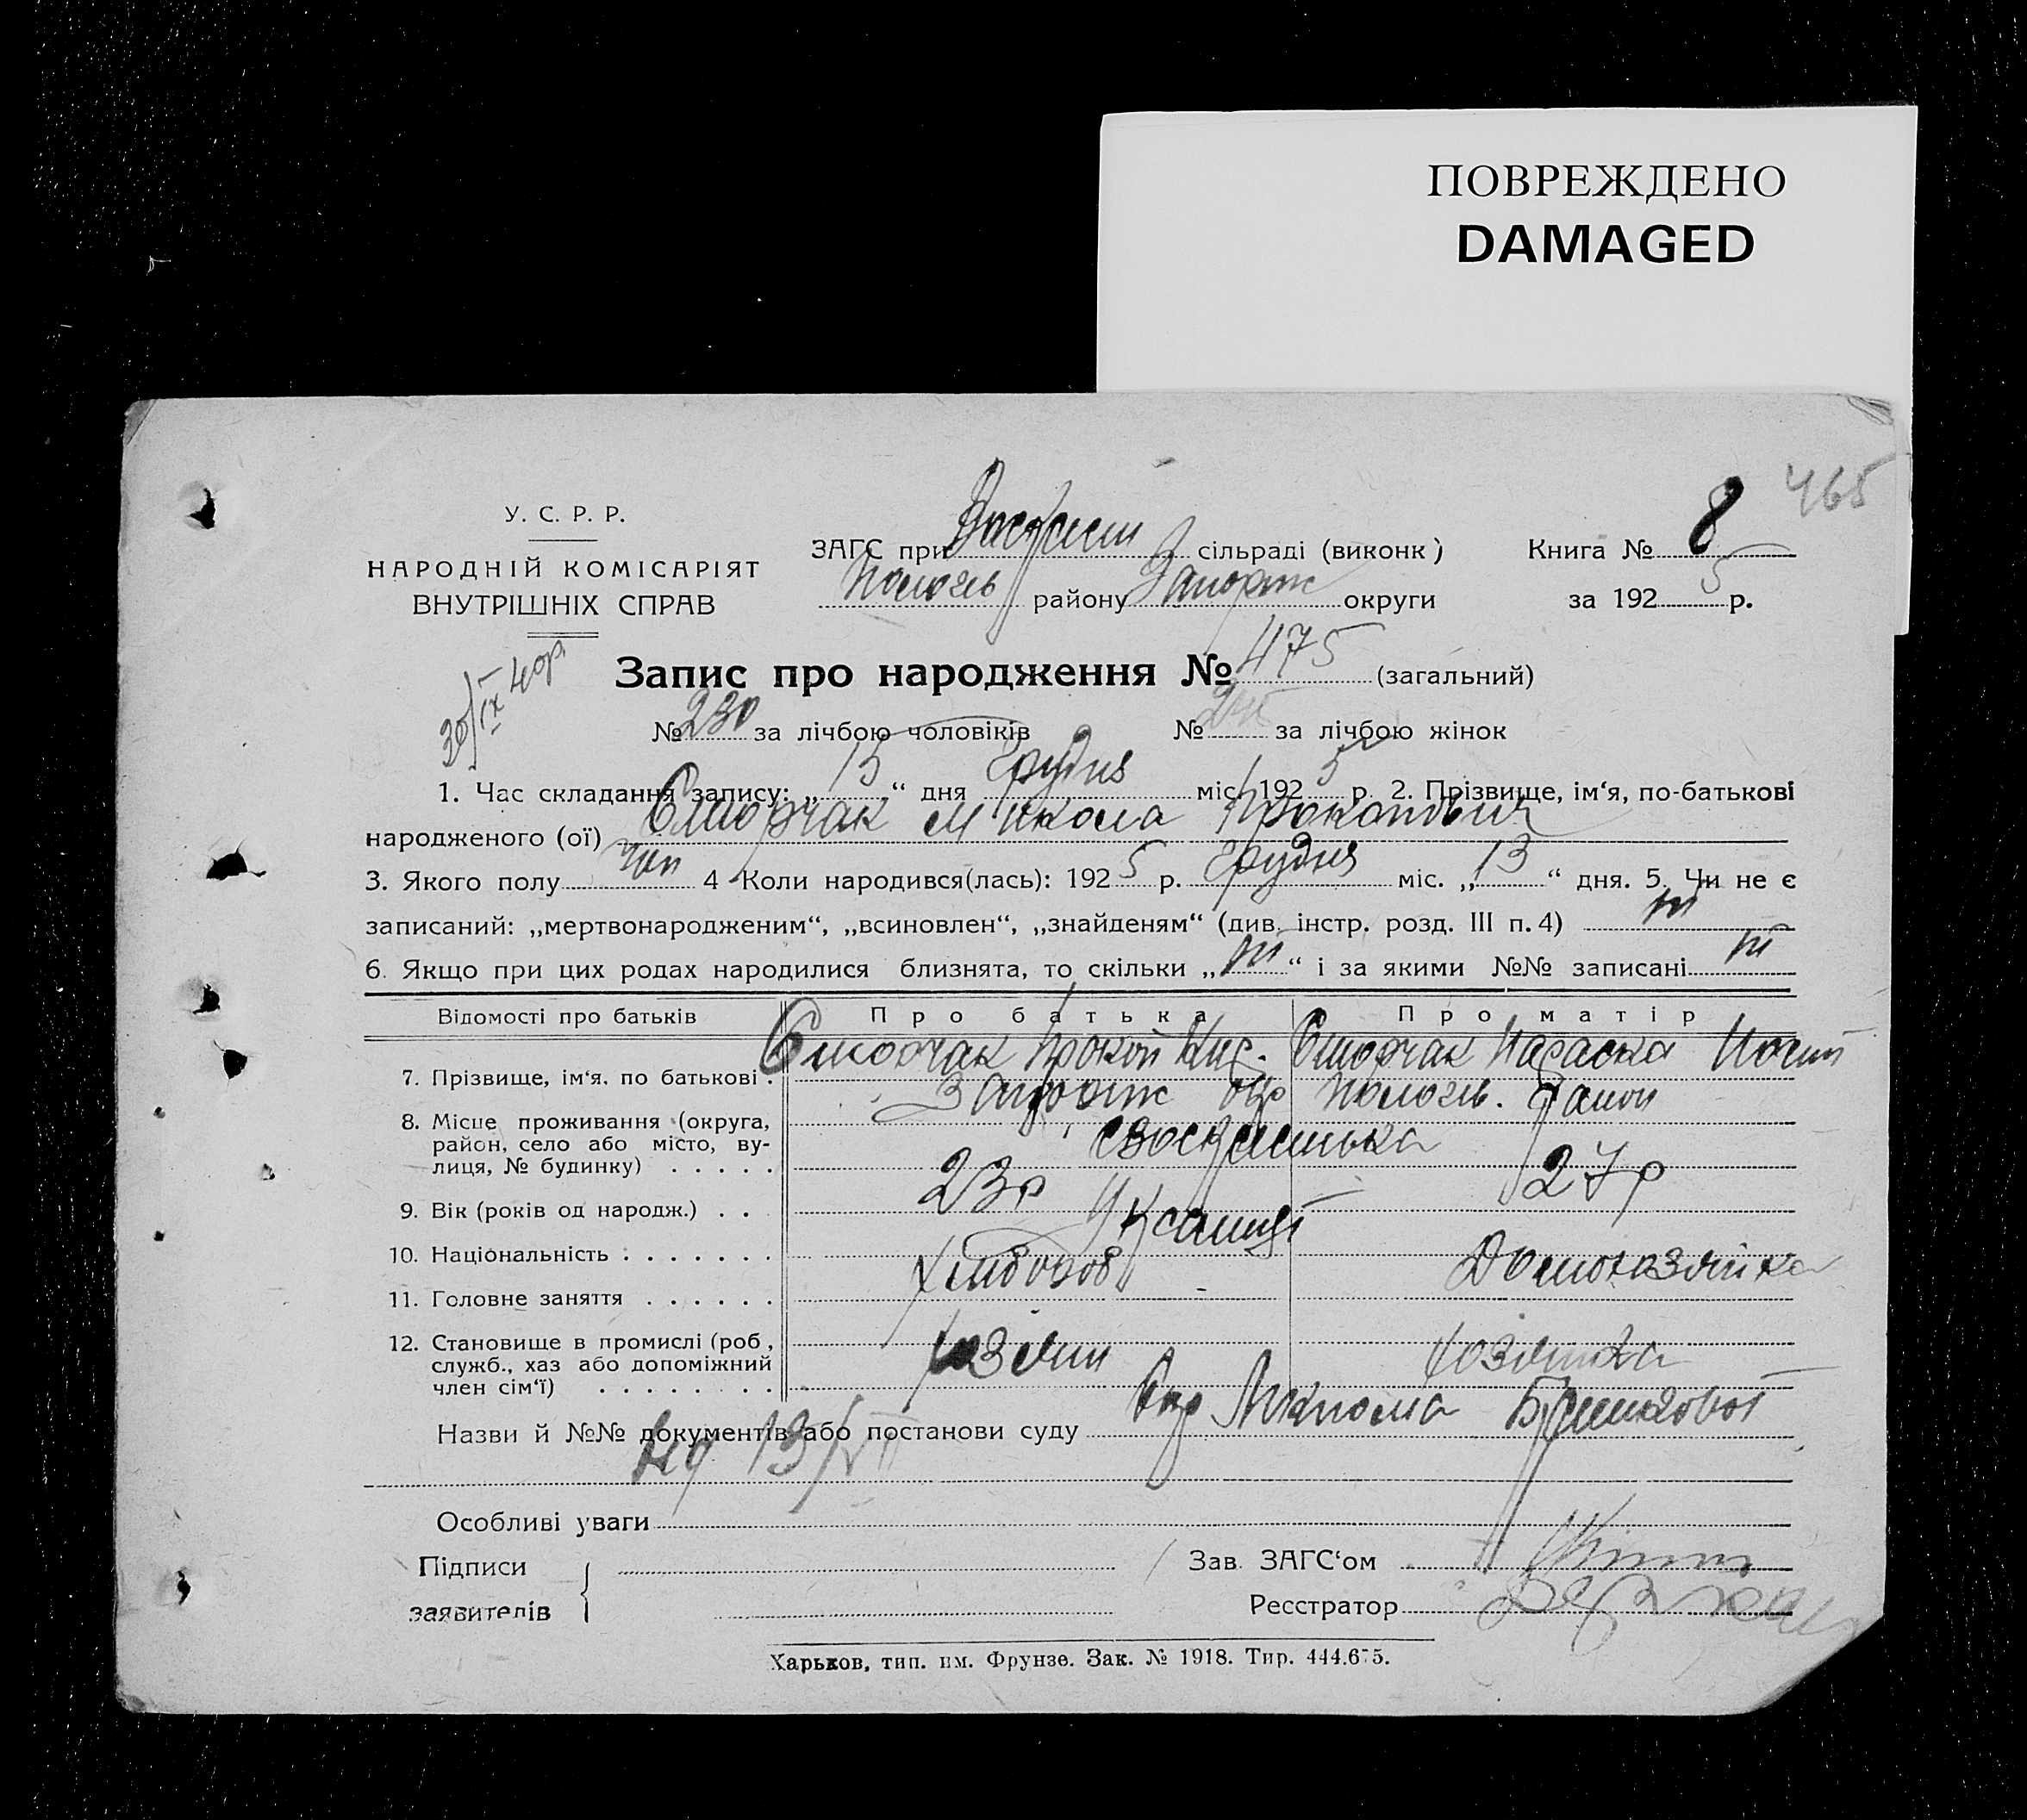 ПОВРЕЖДЕНО
DAMAGED
465
У. С. Р. Р.
НАРОДНІЙ КОМІСАРІЯТ
ВНУТРІШНІХ СПРАВ
ЗАГС при сільраді (виконк)
Пологів району Запоріж округи
Книга № 8
за 1925 р.
Запис про народження № 475 (загальний)
№ 230 за лічбою чоловіків № за лічбою жінок
1. Час складання запису: „ 15 “ дня Грудня міс. 1925 р. 2. Прізвище, ім‘я, по-батькові
народженого (ої) Микола Прокопович
3. Якого полу чол 4 Коли народився(лась): 1925 р. Грудня міс. „ 13 “ дня. 5. Чи не є
записаний: „мертвонародженим“, „всиновлен“, „знайденям“ (див. інстр. розд. III п. 4) ні
6. Якщо при цих родах народилися близнята, то скільки „ ні “ і за якими №№ записані ні
Відомості про батьків Про батька Про матір
7. Прізвище, ім‘я. по батькові . Прокоп Параска
8. Місце проживання (округа,
район, село або місто, ву-
лиця, № будинку) . . . . .
Запоріж окр Пологів. район
9. Вік (років од народж.) . . 23 р 27 р
10. Національність . . . . . . . Українці
11. Головне заняття . . . . . . Хлібороб Домохазяйка
12. Становище в промислі (роб,
служб., хаз або допоміжний
член сім‘ї) . . . . . . . . .
хозяин хозяйка
Назви й №№ документів або постанови суду
Особливі уваги
Підписи
заявителів
Зав. ЗАГС‘ом
Реєстратор
Харьков, тип. им. Фрунзе. Зак. № 1918. Тир. 444.675.